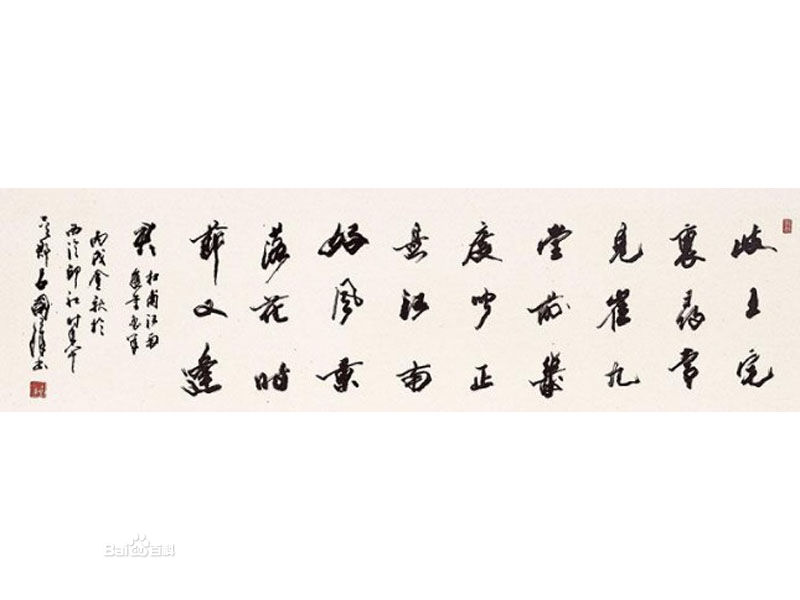 岐王宅
裏尋常
見崔九
堂前幾
度聞正
是江南
好風景
落花時
節又逢
君
杜甫江南
逢李龜年
丙戌金秋於
西泠印社
Bai 百科